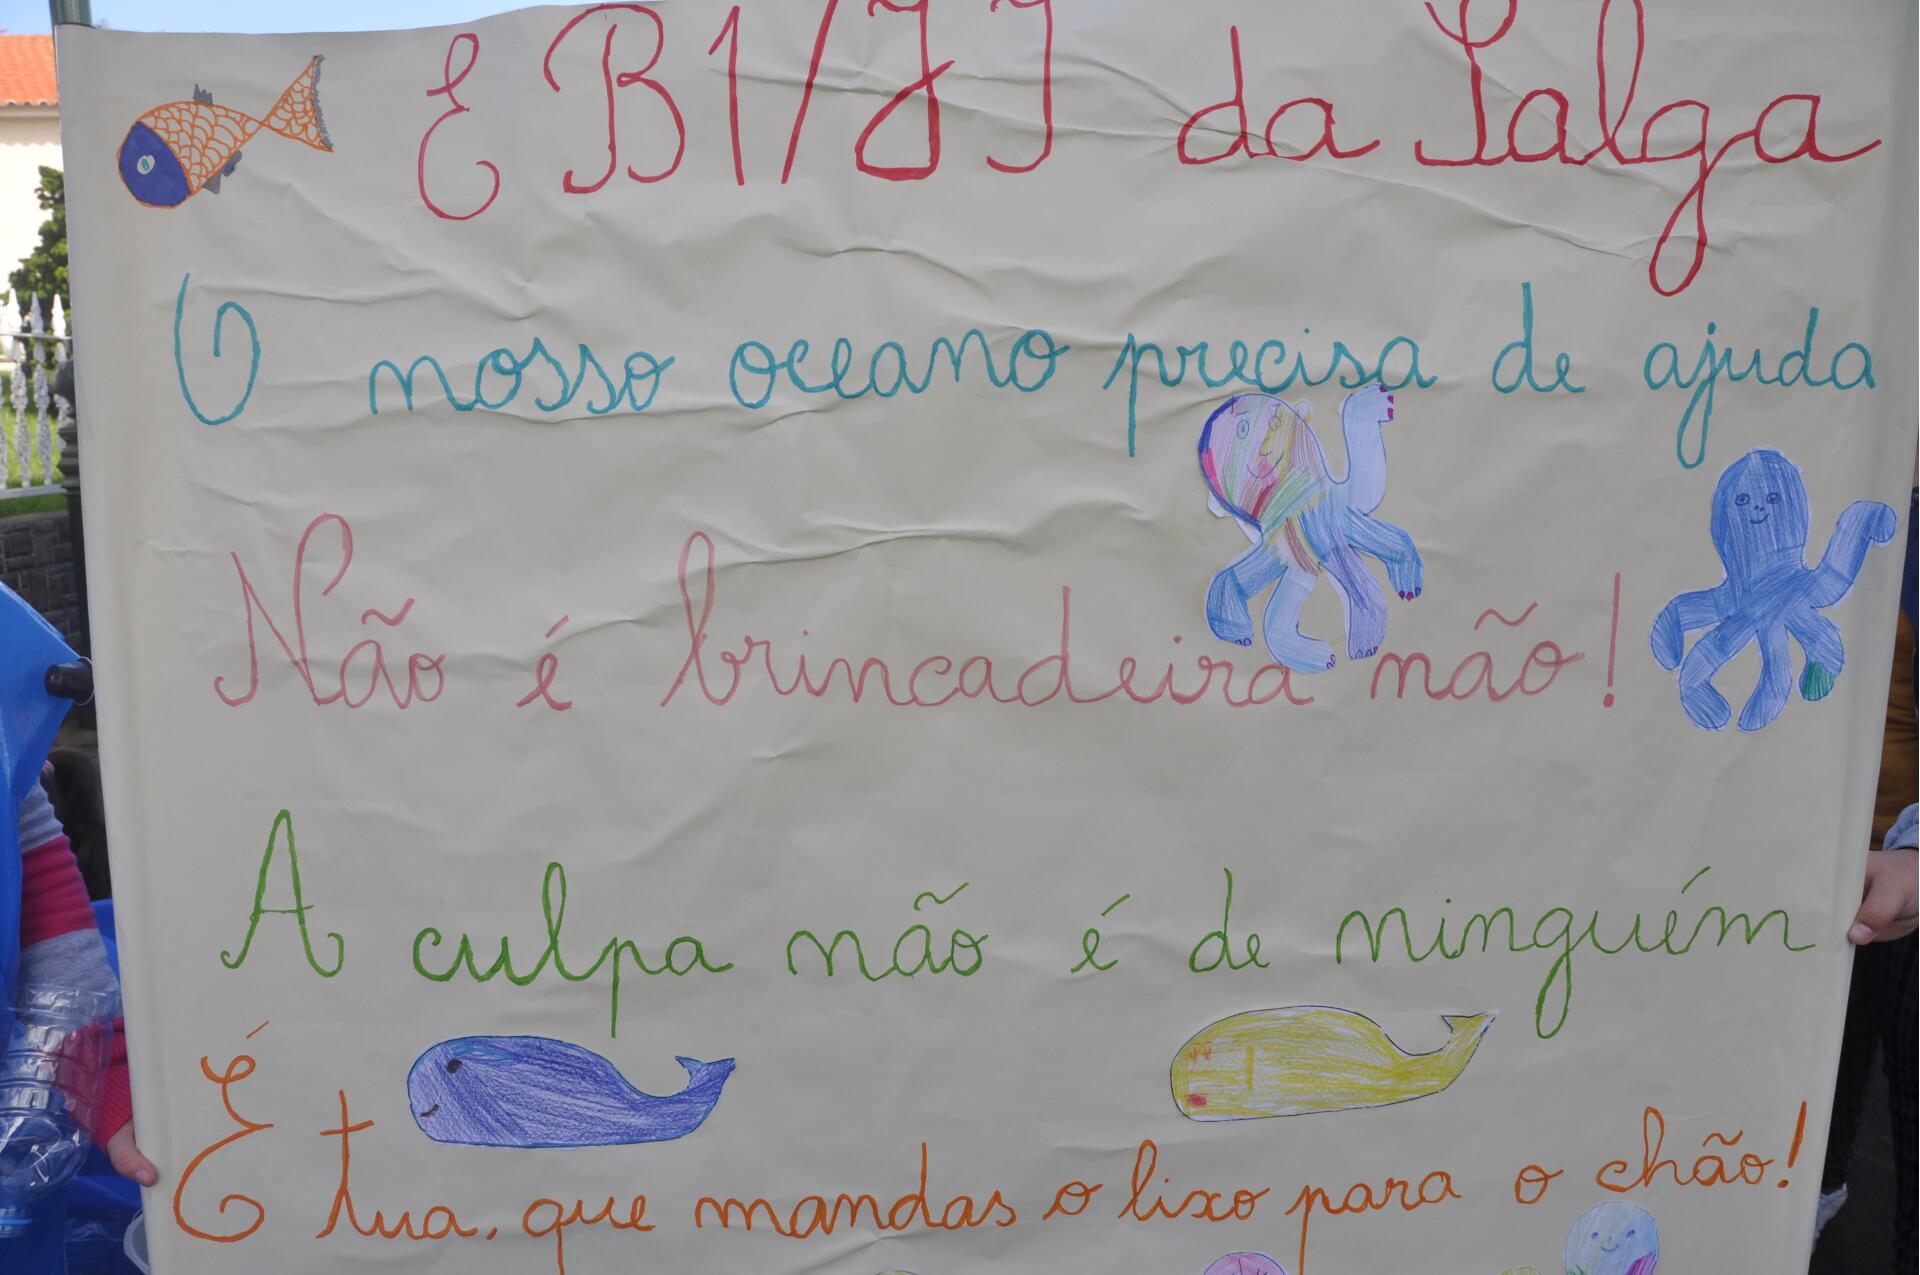 EB1/JI da Salga
O nosso oceano precisa de ajuda
Não é brincadeira não!
A culpa não é de ninguém
É tua, que mandas o lixo para o chão!